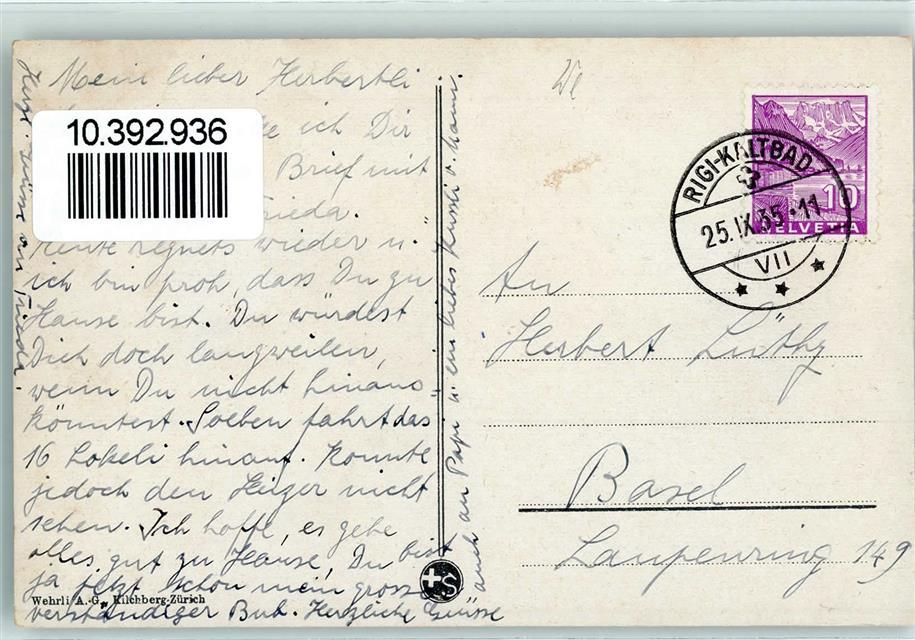 Mein lieber Herbertli
10.392.936
ich Dir
Brief mit
Frieda.
Heute regnets wieder u.
ich bin froh, dass Du zu
Hause bist. Du würdest
Dich doch langweilen,
wenn Du nicht hinaus-
könntest. Soeben fährt das
16 Lokeli hinauf. Konnte
jedoch den Heizer nicht
sehen. Ich hoffe, es gehe
alles gut zu Hause, Du bist
ja jetzt schon mein grosser
verständiger Bub. Herzliche Grüsse
auch an Papi u. ein liebes Küssli v. Mami.
Frieda.
Wehrli A.-G., Kilchberg-Zürich
+S
RIGI-KALTBAD
25.IX.35·11
VII
10
HELVETIA
An
Herbert Lüthy
Basel
Laupenring 149